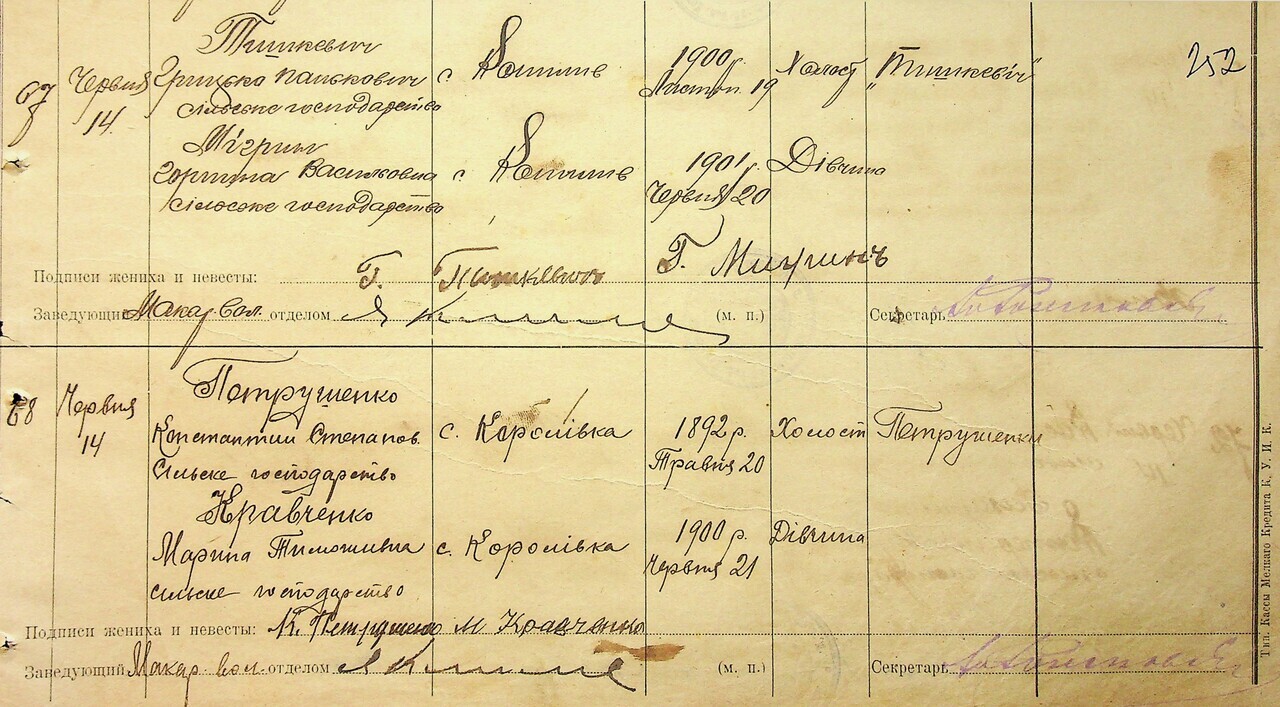 252
67 Червня 14
Тишкевич
Грицько Панькович
сільське господарство
с. Копилів
1900 р. Листоп. 19
Холост
"Тишкевич"
Мігрин
Горпина Васильовна
сільське господарство
с. Копилів
1901 р. Червня 20
Дівчина
Подписи жениха и невесты: Г. Тишкевич Г. Мигринъ
Заведующий Макар. вол. отделом (м. п.) Секретарь
68 Червня 14
Петрушенко
Константин Степанов.
Сільске господарство
с. Королівка
1892 р. Травня 20
Холост
Петрушенки
Кравченко
Марина Тимошивна
сільске господарство
с. Королівка
1900 р. Червня 21
Дівчина
Подписи жениха и невесты: К. Петрушенко М Кравченко
Заведующий Макар. вол. отделом (м. п.) Секретарь
Тип. Кассы Мелкаго Кредита К. У. И. К.